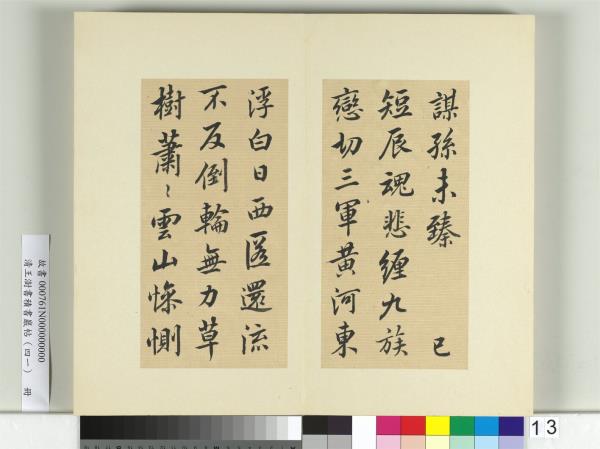 謀孫未臻 已
短辰魂悲纏九族
戀切三軍黃河東
浮白日西匿還流
不反倒輪無力草
樹蕭〻雲山慘惻
故書 000761N000000000
清王澍書積書巖帖(四一) 冊
13